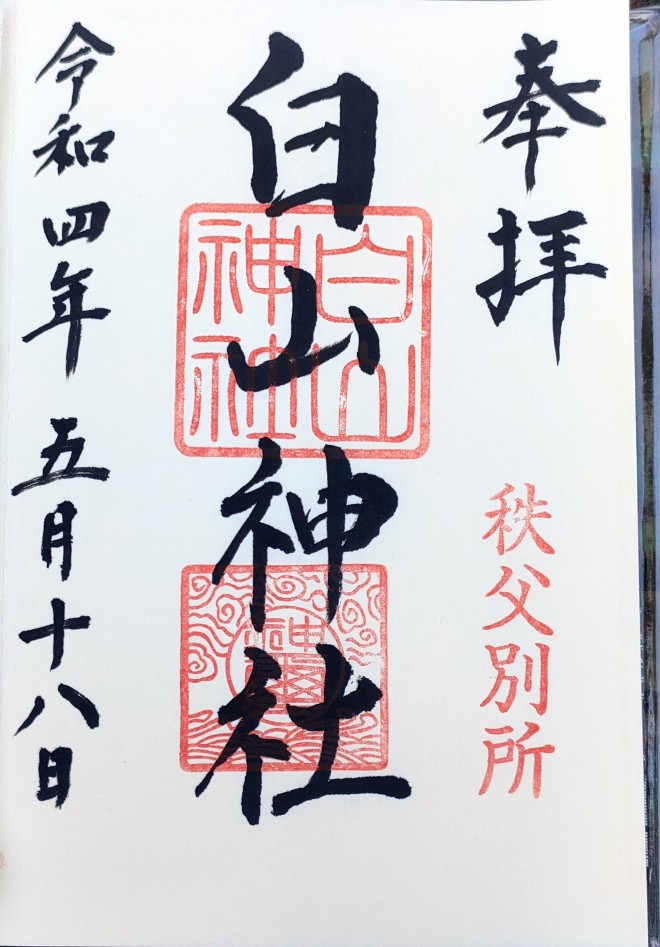 奉拝
秩父別所
白山神社
白山
神神
令和四年五月十八日